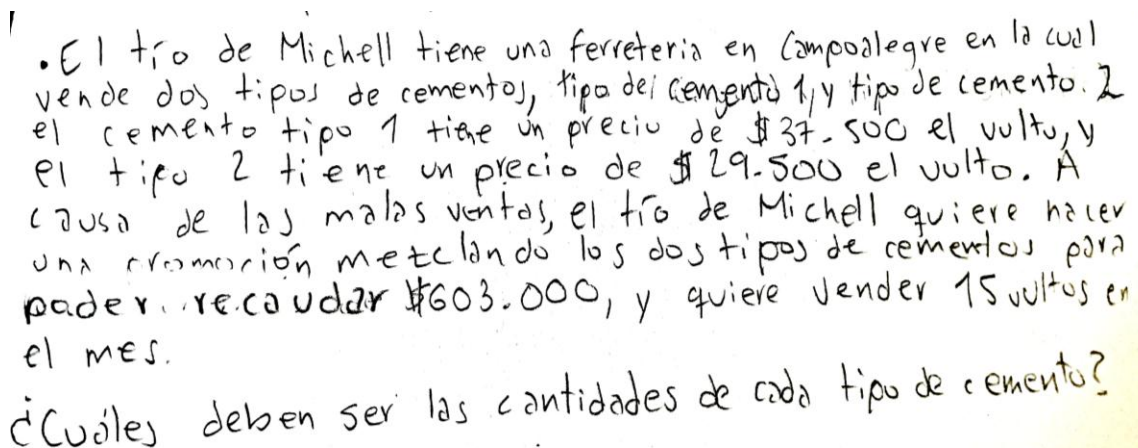 . El tío de Michell tiene una ferreteria en Campoalegre en la cual
vende dos tipos de cementos, tipo de cemento 1, y tipo de cemento. 2
el cemento tipo 1 tiene un precio de $37.500 el vulto, y
el tipo 2 tiene un precio de $29.500 el vulto. A
causa de las malas ventas, el tío de Michell quiere hacer
una promoción mezclando los dos tipos de cementos para
poder. recaudar $603.000, y quiere vender 15 vultos en
el mes.
¿Cuáles deben ser las cantidades de cada tipo de cemento?